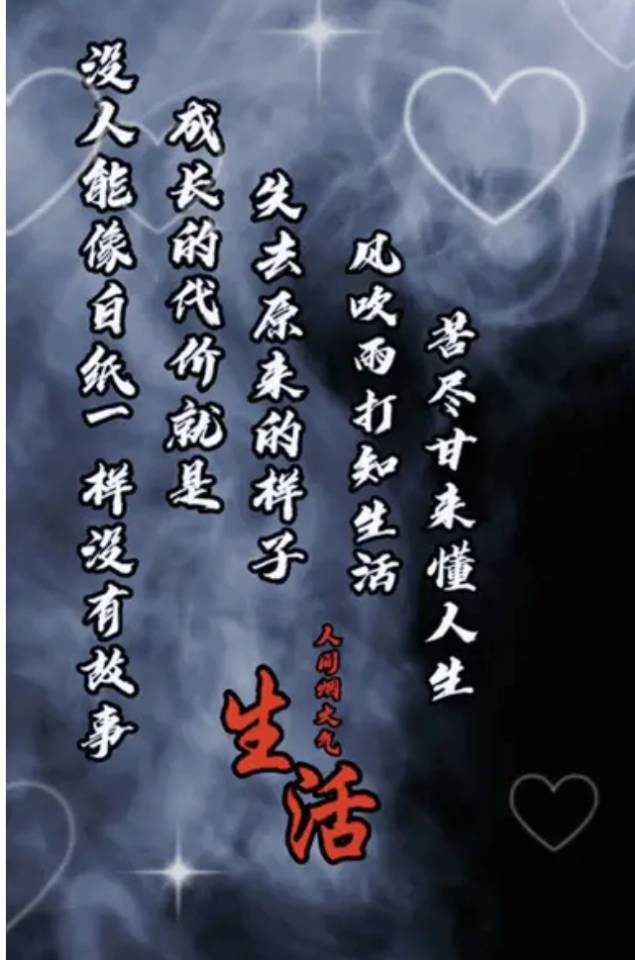 没人能像白纸一样没有故事
成长的代价就是
失去原来的样子
风吹雨打知生活
苦尽甘来懂人生
人间烟火气
生活